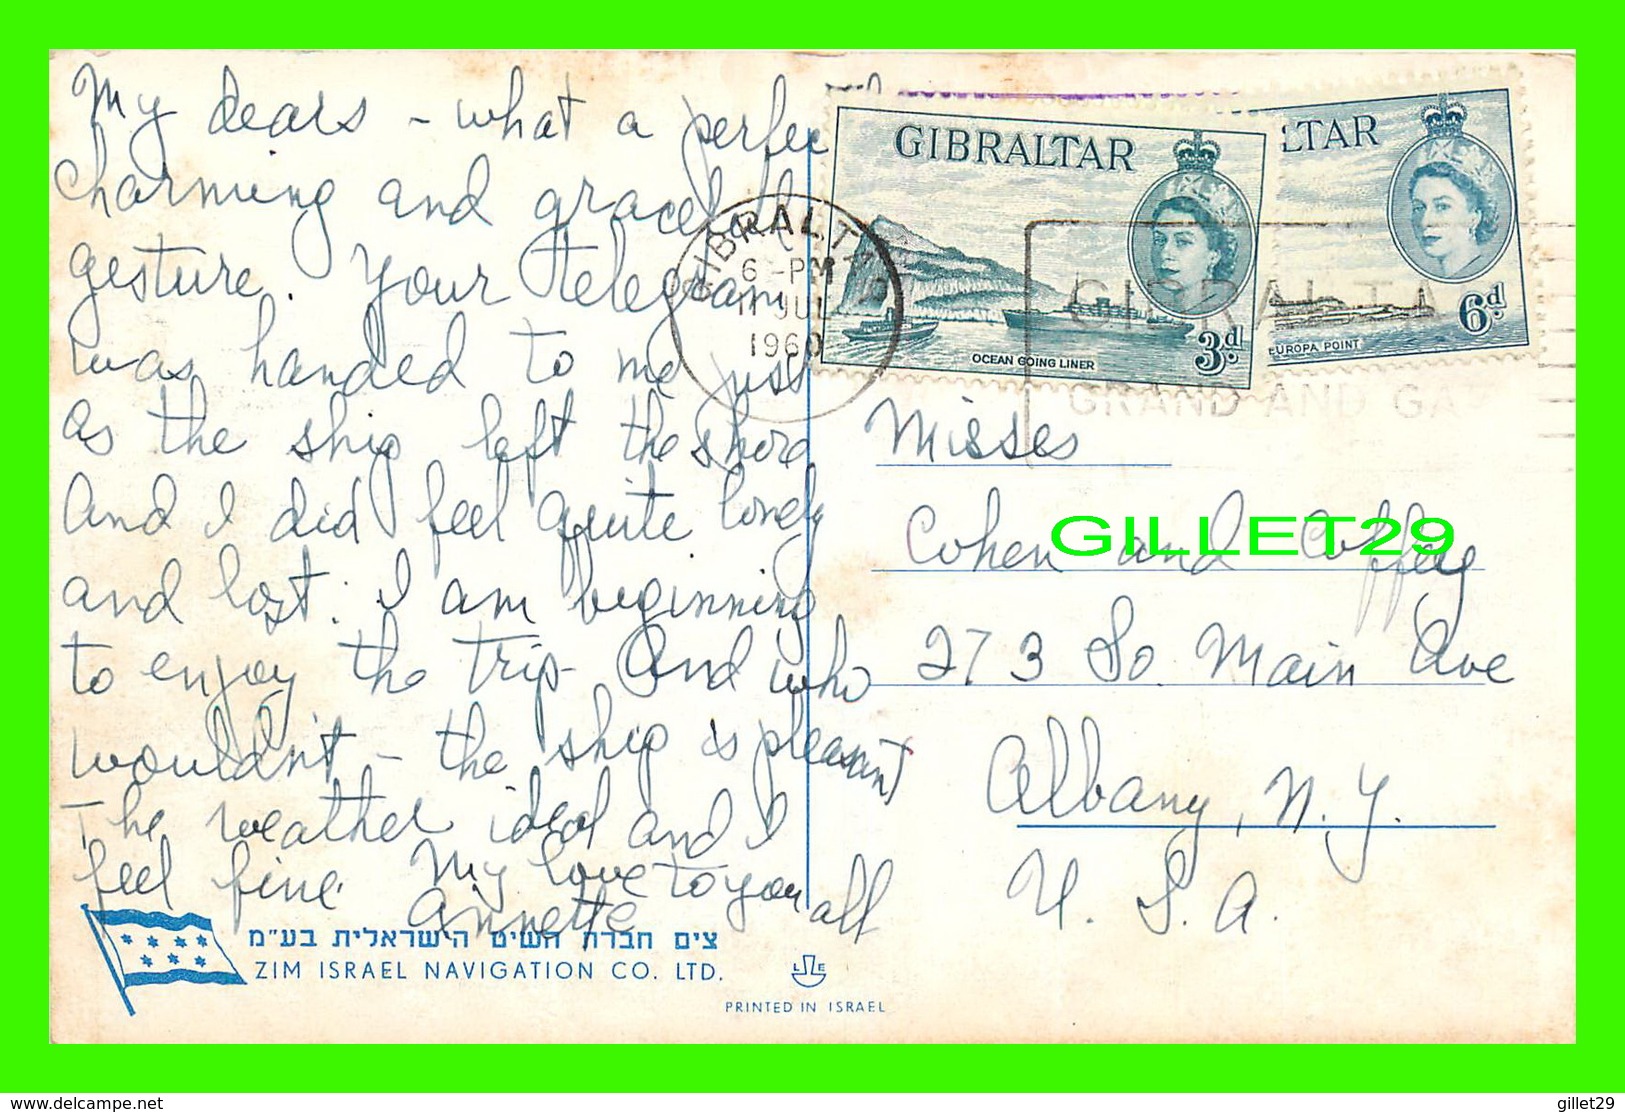 My dears - what a perfec
charming and graceful
gesture. Your telegram
was handed to me just
as the ship left the shore
And I did feel quite lonely
and lost. I am beginning
to enjoy the trip - And who
wouldn't - the ship is pleasant
The weather ideal and I
feel fine. My love to you all
Annette
צים חברת השיט הישראלית בע"מ
ZIM ISRAEL NAVIGATION CO. LTD.
L E
PRINTED IN ISRAEL
GIBRALTAR
OCEAN GOING LINER
3d.
LTAR
EUROPA POINT
6d.
GIBRALTAR
6 - PM
11 JUL
1960
GIBRALTA
GRAND AND GA
Misses
Cohen and Coffey
273 So. Main Ave
Albany, N.Y.
U.S.A.
GILLET29
www.delcampe.net
gillet29